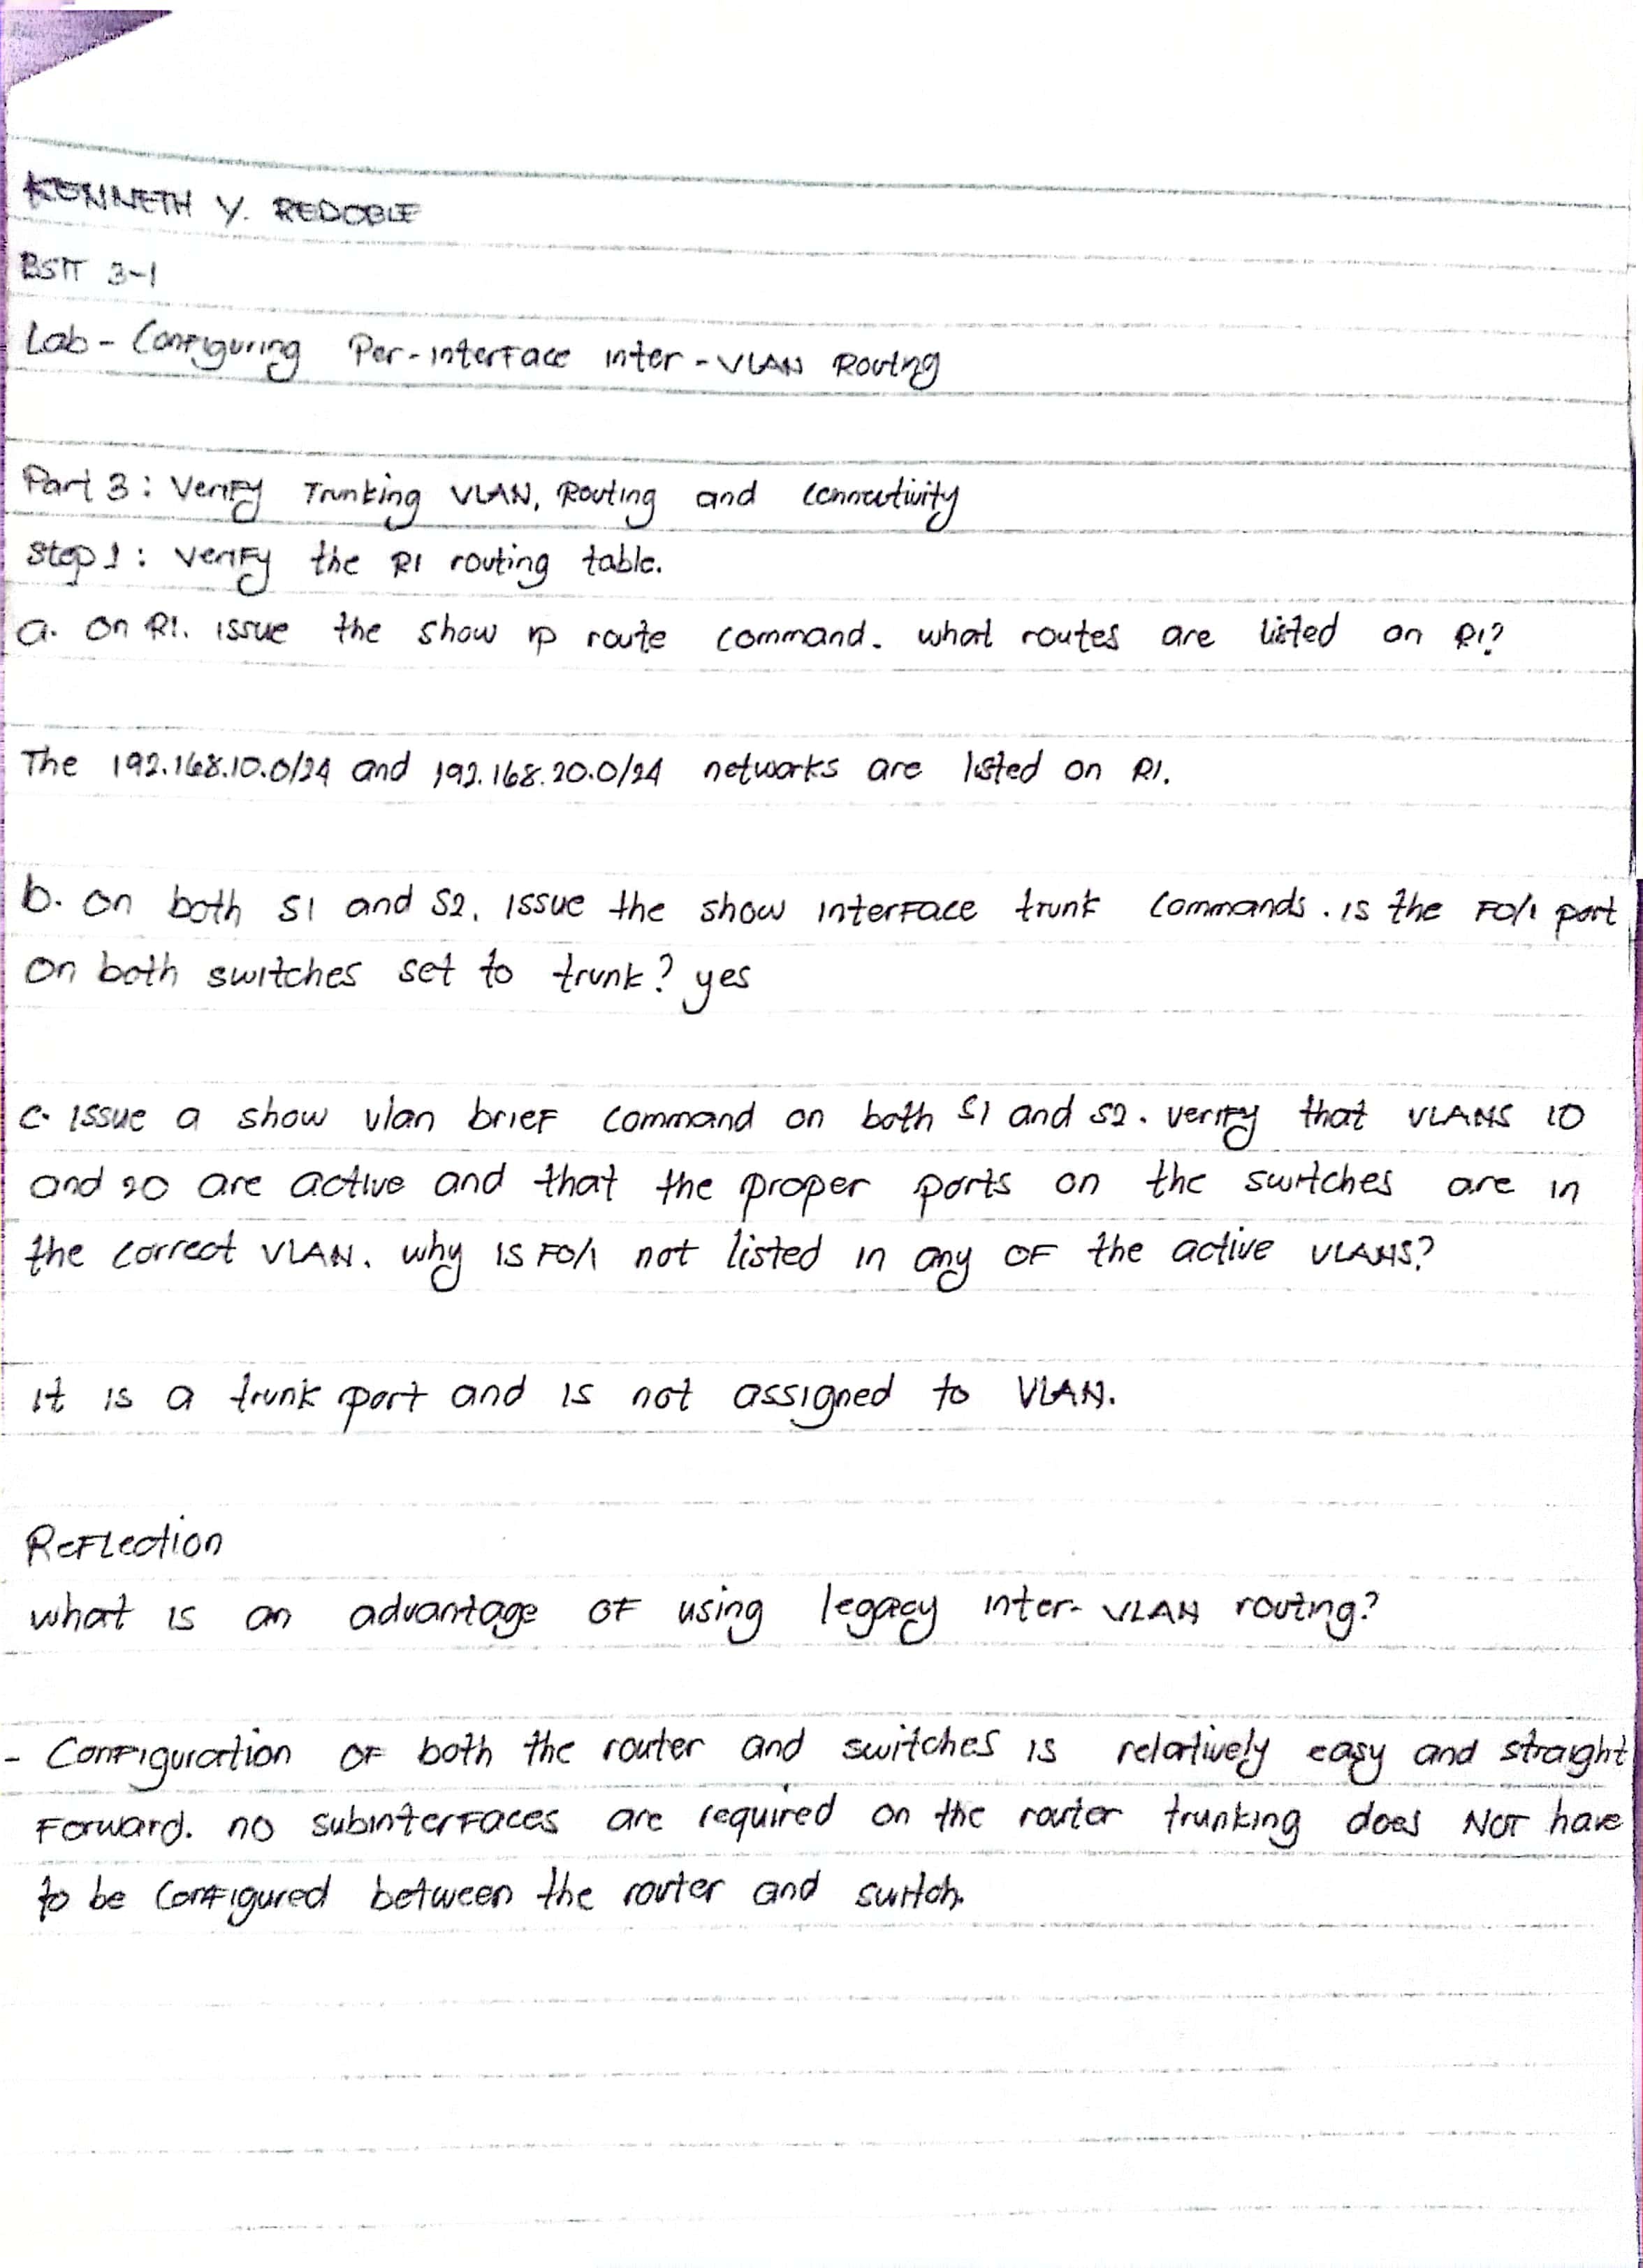 KENNETH Y. REDOBLE
BSIT 3-1
Lab - Configuring Per-interface inter-VLAN Routing
Part 3: Verify Trunking VLAN, Routing and connectivity
Step 1: Verify the R1 routing table.
a. On R1. issue the show ip route command. what routes are listed on R1?
The 192.168.10.0/24 and 192.168.20.0/24 networks are listed on R1.
b. on both S1 and S2, issue the show interface trunk commands. is the F0/1 port
on both switches set to trunk? yes
c. issue a show vlan brief command on both S1 and S2. verify that VLANS 10
and 20 are active and that the proper ports on the switches are in
the correct VLAN. why is F0/1 not listed in any of the active VLANS?
it is a trunk port and is not assigned to VLAN.
Reflection
what is an advantage of using legacy inter-VLAN routing?
- Configuration of both the router and switches is relatively easy and straight
Forward. no subinterfaces are required on the router trunking does NOT have
to be configured between the router and switch.